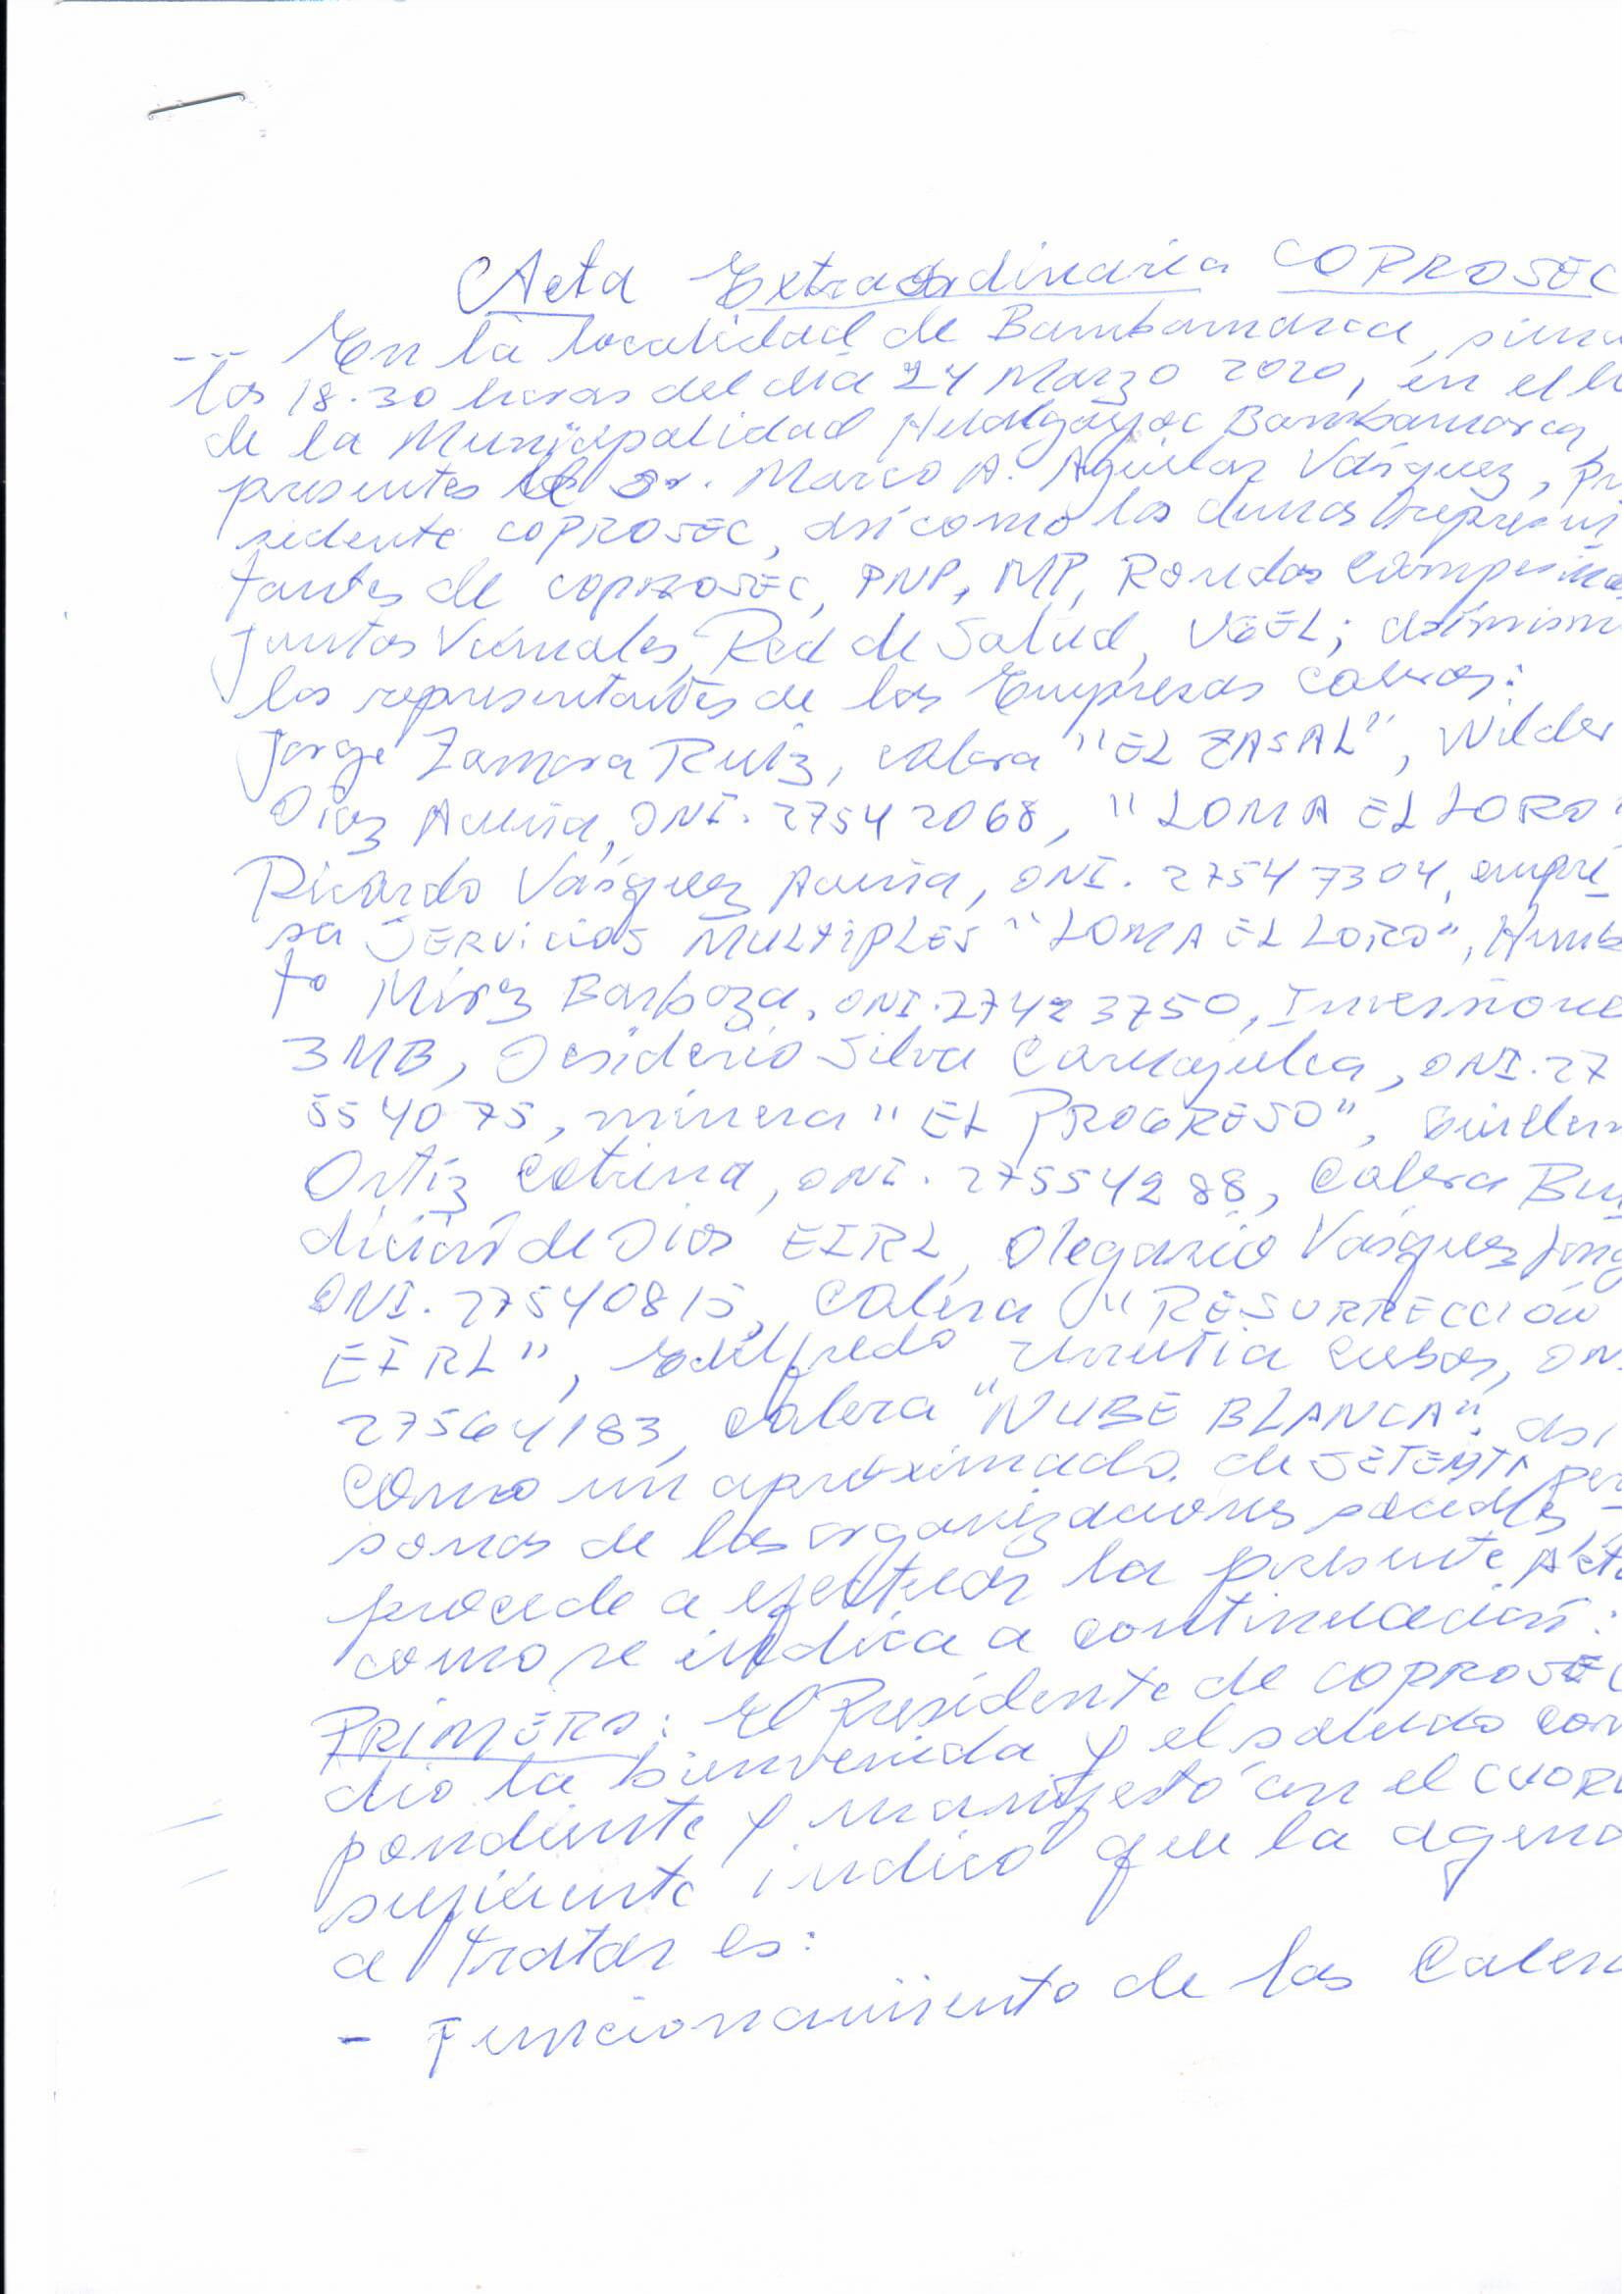 Acta Extraordinaria COPROSEC
--- En la localidad de Bambamarca, sien
los 18.30 horas del día 24 Marzo 2020, en el l
de la Municipalidad Hualgayoc Bambamarca,
presentes el Sr. Marco A. Aguilar Vásquez, Pr
sidente COPROSEC, así como los demas represen
tantes de COPROSEC, PNP, MP, Rondas Campesinas
Juntas Vecinales, Red de Salud, UGEL; asimism
los representantes de las Empresas caleras:
Jorge Zamora Ruiz, calera "EL ZASAL", Wilder
Diaz Acuña, DNI. 27542068, "LOMA EL LORO"
Ricardo Vásquez Acuña, DNI. 27547304, empre
sa SERVicios MULTIPLES "LOMA EL LORO", Humb
to Mirez Barboza, DNI. 27423750, Inversione
3MB, Desiderio Silva Carhuajulca, DNI. 27
554075, minera "EL PROGRESO", Guiller
Ortiz Cotrina, DNI. 27554288, Calera Bu
dición de Dios EIRL, Olegario Vasquez
DNI. 27540815, Calera "RESURRECCIÓN
EIRL", Edilfredo Urrutia Cubas, DN
27564183, Calera "NUBE BLANCA". así
como un aproximado de SETENTA per
sonas de las organizaciones sociales
procede a ejectuar la presente Act
como se indica a continuación:
PRIMERO: El Presidente de COPROSEC
dio la bienvenida y el saludo corr
pondiente y manifestó con el CUOR
suficiente indicó que la agend
a tratar es:
- Funcionamiento de las Caler